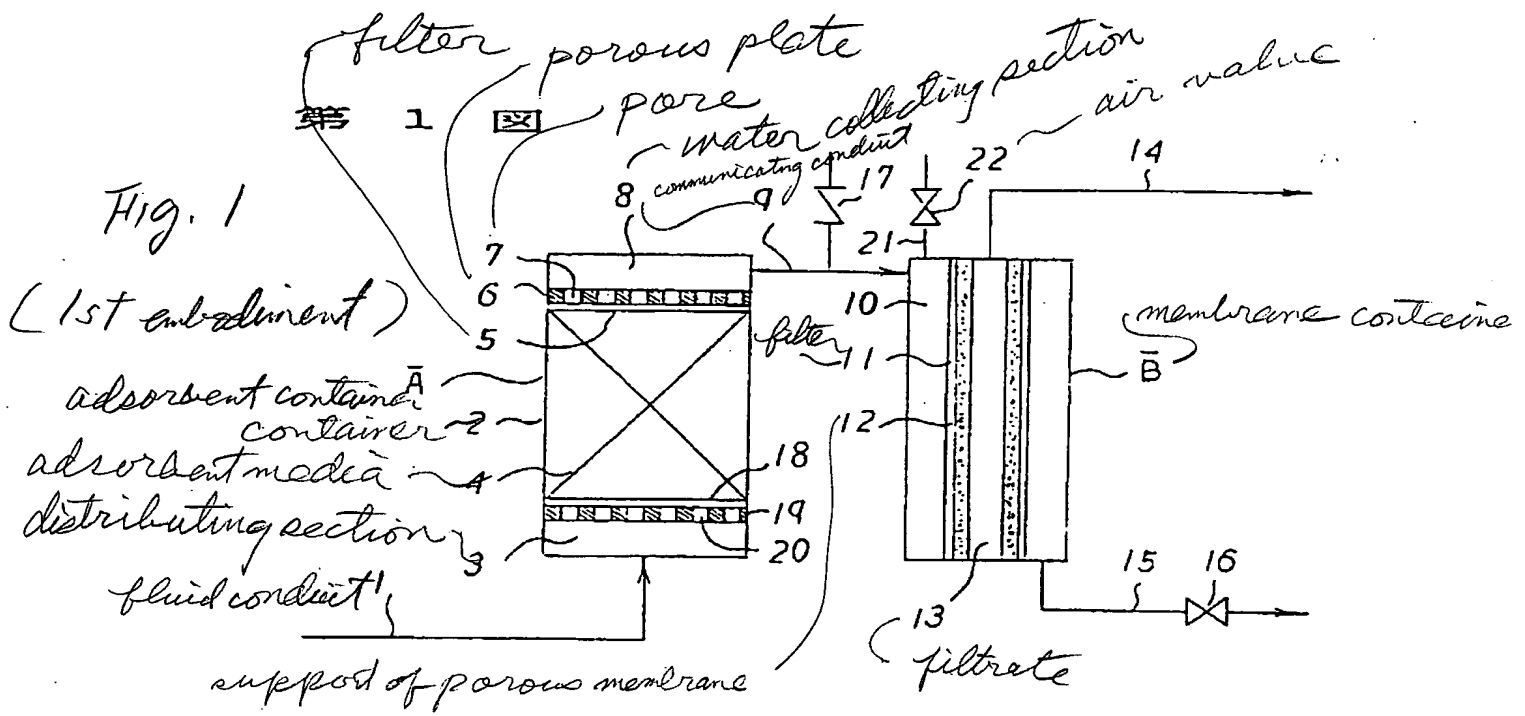 filter
porous plate
第 1 図
pore
water collecting section
air value
communicatng conduit
Fig. 1
(1st embodiment)
8
9
17
22
14
7
21
6
10
membrane containe
5
filter
11
B
A
adsorbent container
container
2
12
adsorbent media
4
18
distributing section
19
3
20
15
16
fluid conduit
1
13
filtrate
support of porous membrane